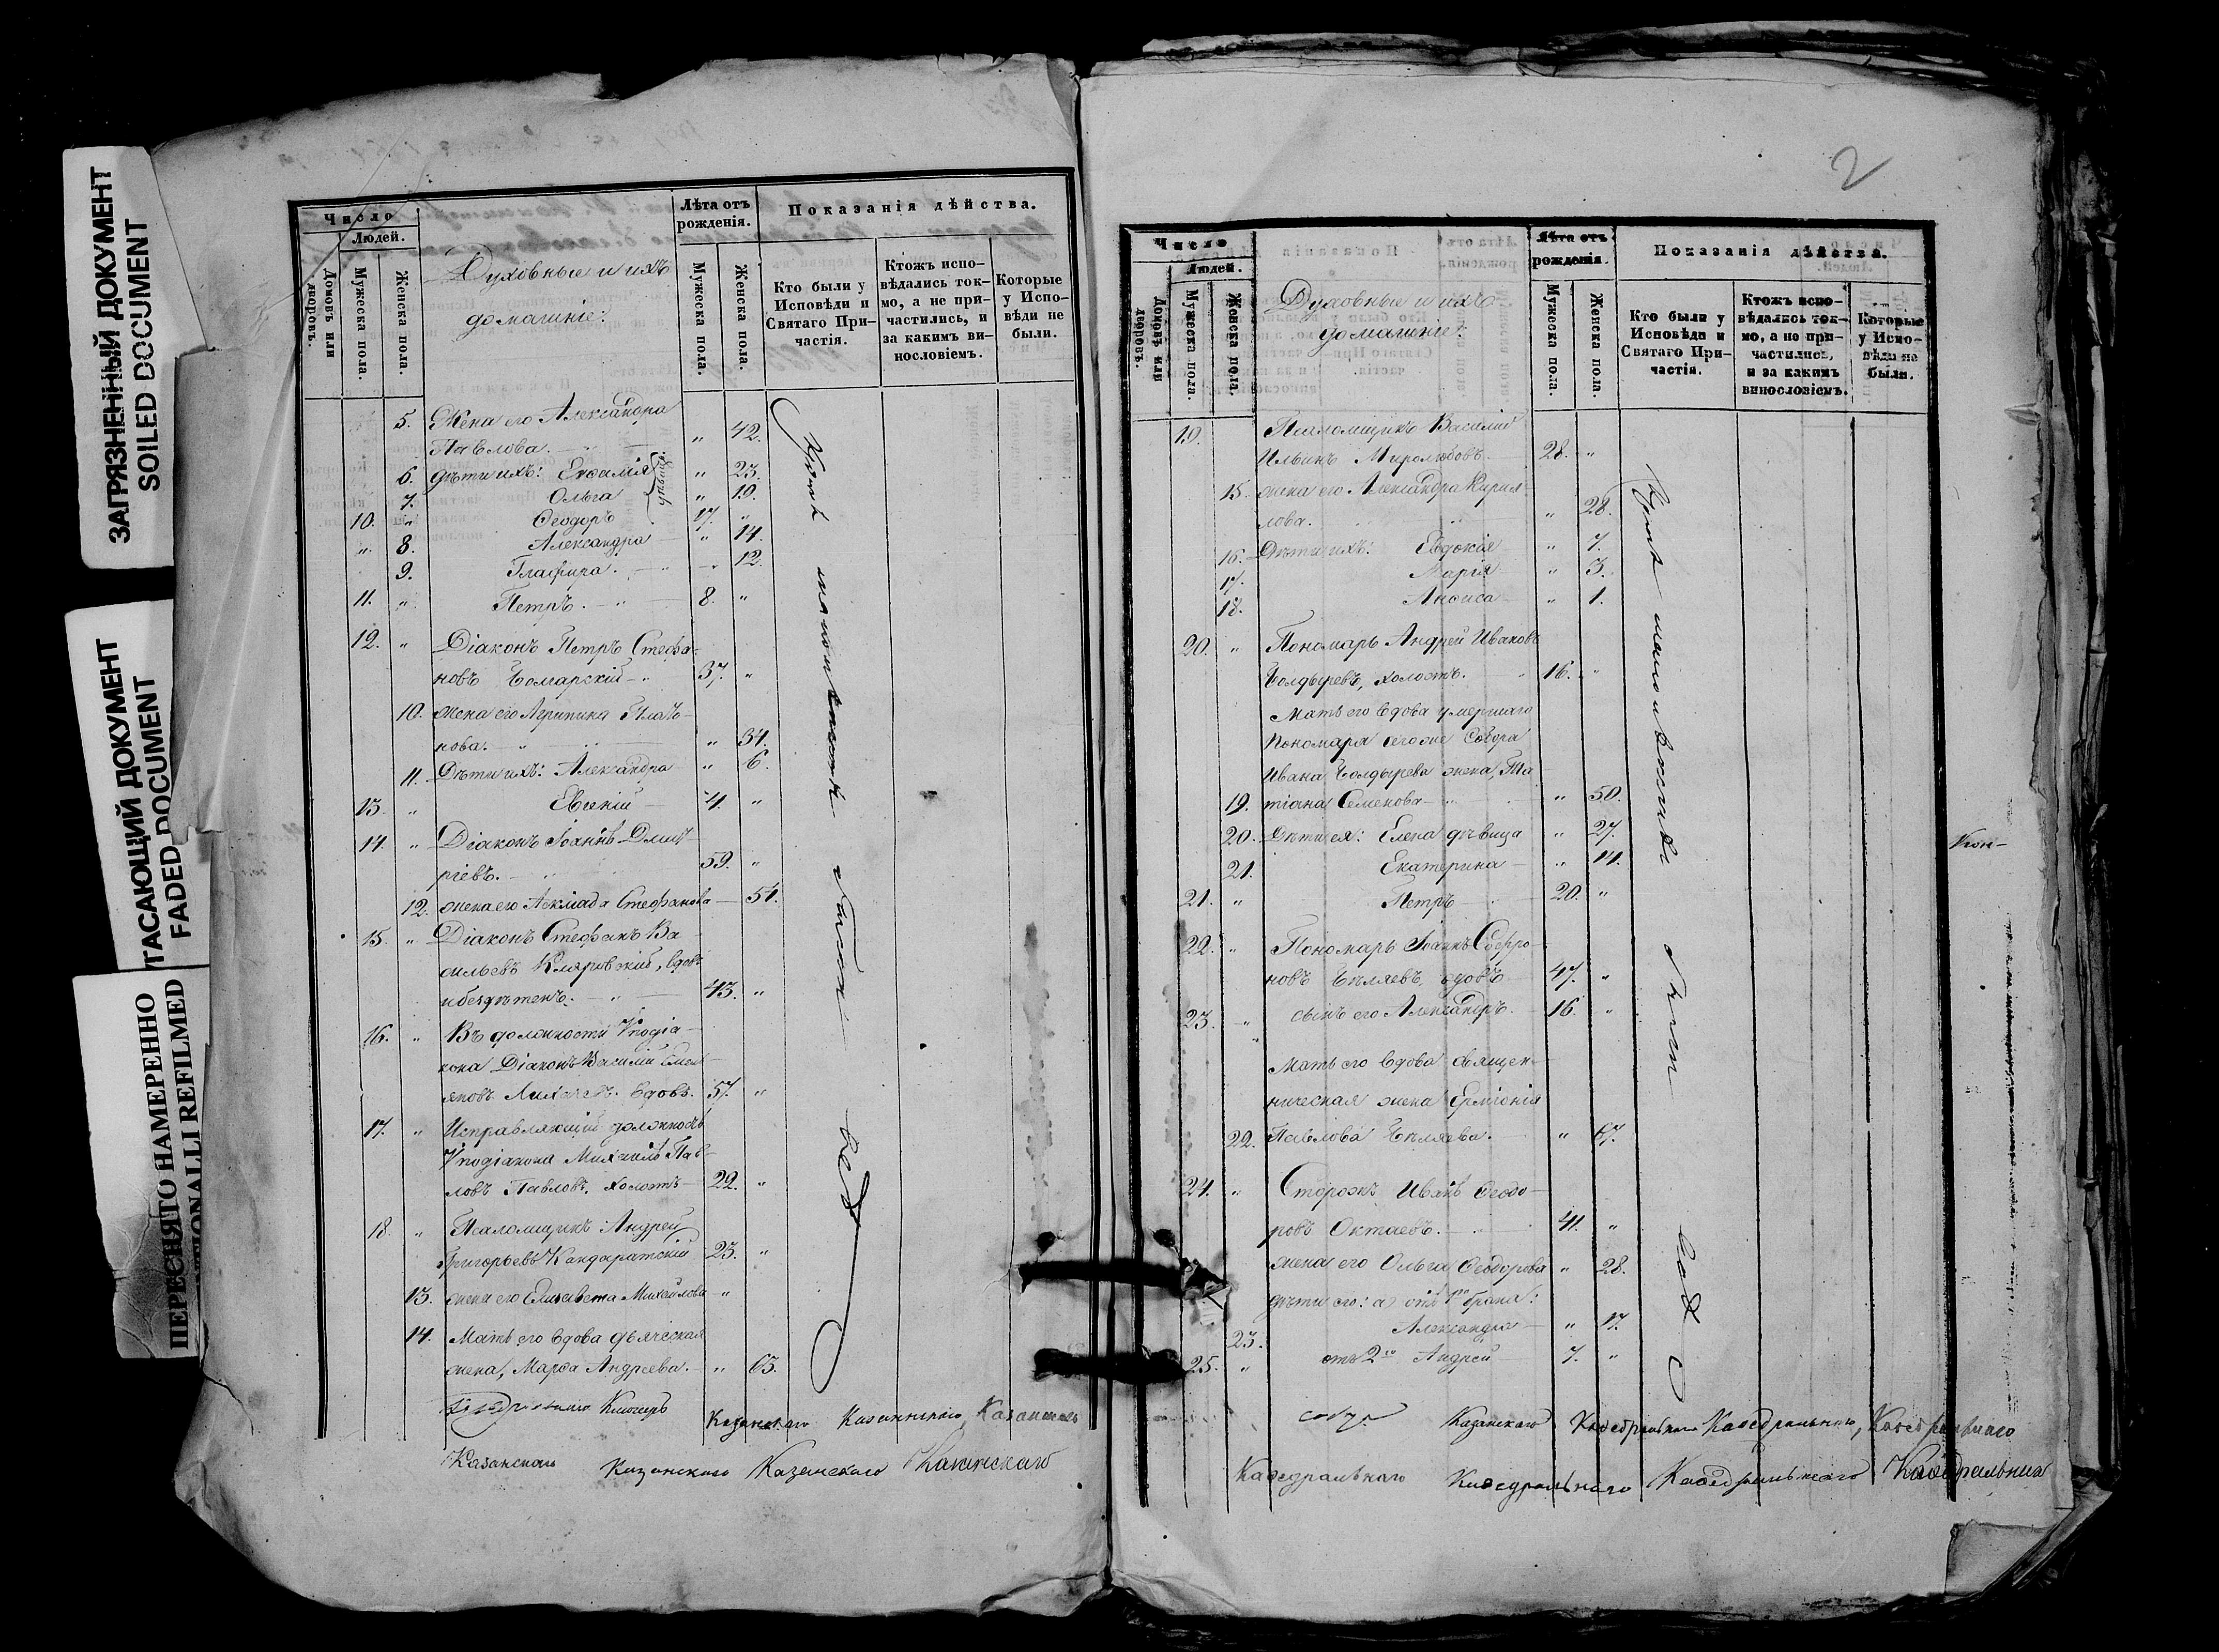 ЗАГРЯЗНЕННЫЙ ДОКУМЕНТ
SOILED DOCUMENT
ТАСАЮЩИЙ ДОКУМЕНТ
FADED DOCUMENT
ПЕРЕСНЯТО НАМЕРЕННО
INTENTIONALLY REFILMED
Число
Людей.
Домовъ или дворовъ.
Мужеска пола.
Женска пола.
Духовные и ихъ
домашніе:
Лѣта отъ рожденія.
Мужеска пола.
Женска пола.
Показанія дѣйства.
Кто были у Исповѣди и Святаго При-частія.
Ктожъ испо-вѣдались ток-мо, а не при-частились, и за какимъ ви-нословіемъ.
Которые у Испо-вѣди не были.
5. Жена его Александра
Павлова. " 42.
6. дѣти ихъ: Евѳалія " 23.
7. Ольга " 19.
дѣвицы.
10. " Ѳеодоръ 17. "
" 8. Александра " 14.
9. Глафира. " 12.
11. " Петръ. 8. "
12. " Діаконъ Петръ Стефа-
новъ Болгарскій 37. "
10. жена его Агрипина Плато-
нова. " 34.
11. Дѣти ихъ: Александра " 6.
13. " Евгеній 4. "
14. " Діаконъ Іоаннъ Дмит-
ріевъ. 59. "
12. жена его Стефанова 54.
15. " Діаконъ Стефанъ Ва-
сильевъ Кляровскій, вдовъ
и бездѣтенъ. 43. "
16. " Въ должности Vподіа-
кона Діаконъ Василій
вдовъ. 57. "
17. " Исправляющій должность
Vподіакона Михаилъ Пав-
ловъ Павловъ, холостъ 22. "
18. " Псаломщикъ Андрей
Григорьевъ Кандаратскій 23. "
13. жена его Елисавета Михайлова "
14. Мать его вдова дьяческая
жена, Марѳа Андреева. " 63.
Ключарь Казанскаго Казанскаго Казанскаго
Казанскаго Казанскаго Казанскаго Казанскаго
2
Число
Людей.
Домовъ или дворовъ.
Мужеска пола.
Женска пола.
Духовные и ихъ
домашніе:
Лѣта отъ рожденія.
Мужеска пола.
Женска пола.
Показанія дѣйства.
Кто были у Исповѣди и Святаго При-частія.
Ктожъ испо-вѣдались ток-мо, а не при-частились, и за какимъ винословіемъ.
Которые у Испо-вѣди не были.
19. Псаломщикъ Василій
Ильинъ Миролюбовъ. 28. "
15. жена его Александра Кирил-
лова. " 28.
16. Дѣти ихъ: Евдокія " 7.
17. Марія " 3.
18. Анѳиса " 1.
20. " Пономарь Андрей Ивановъ
Болдыревъ, холостъ. 16. "
Мать его вдова умершаго
Пономаря сегоже Собора
Ивана Болдырева жена, Та-
19. тіана Семенова " 50.
20. Дѣти ея: Елена дѣвица " 27.
21. Екатерина " 14.
21. " Петръ 20. "
22. " Пономарь Іоаннъ Софро-
новъ Бѣляевъ, вдовъ 47. "
23. " сынъ его Александръ. 16. "
Мать его вдова священ-
ническая жена Ерміонія
22. Павлова Бѣляева. " 67.
24. " Сторожъ Иванъ Ѳеодо-
ровъ Октаевъ. 41. "
жена его Ольга Ѳеодорова " 28.
дѣти его: а) отъ 1го брака:
23. Александра " 17.
25. " отъ 2го Андрей 7. "
Казанскаго Каѳедральнаго Каѳедральнаго, Каѳедральнаго
Каѳедральнаго Каѳедральнаго Каѳедральнаго Каѳедральнаго